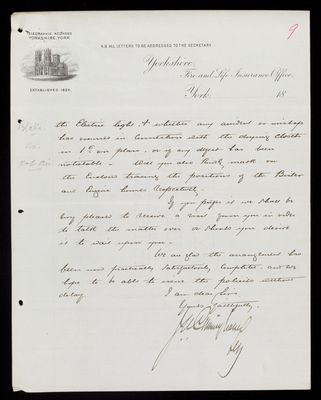 9
TELEGRAPHIC ADDRESS
YORKSHIRE, YORK.
ESTABLISHED 1824.
N.B. ALL LETTERS TO BE ADDRESSED TO THE SECRETARY.
Yorkshire
Fire and Life Insurance Office,
York, 18
the Electric light, & whether any accident or mishap
has occurred in connection with the drying closets
in 1 on plan, or if any defect has been
noticeable. Will you also kindly mark on
the enclosed tracing the positions of the Boiler
and Engine houses respectively.
If you prefer it we shall be
very pleased to receive a visit from you in order
to talk the matter over or should you desire
it to wait upon you.
We are glad the arrangement has
been now practically satisfactorily completed and we
hope to be able to issue the policies without
delay.
I am dear Sirs
Yours faithfully,
Secy